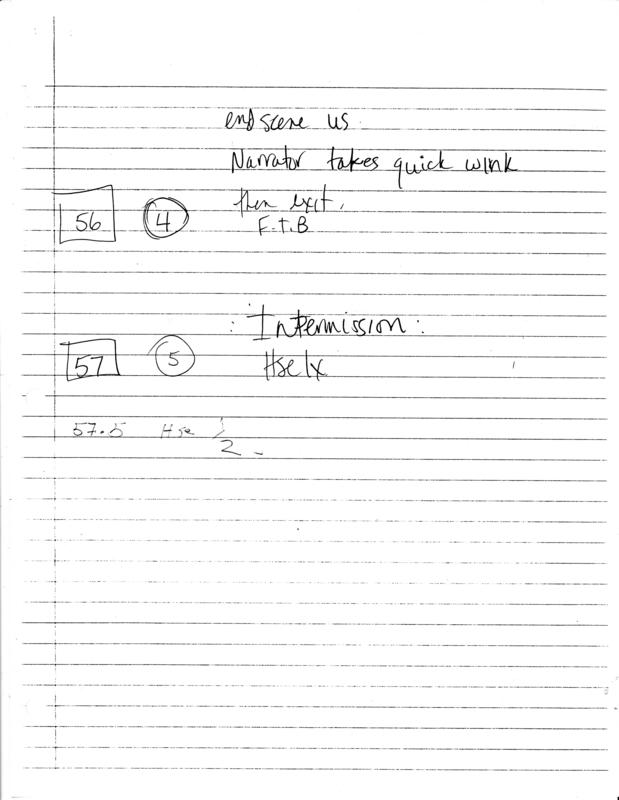 end scene us
Narrator takes quick wink
then exit.
56 4 F.T.B
: Intermission :
57 5 Hse lx
57.5 Hse 1/2 -